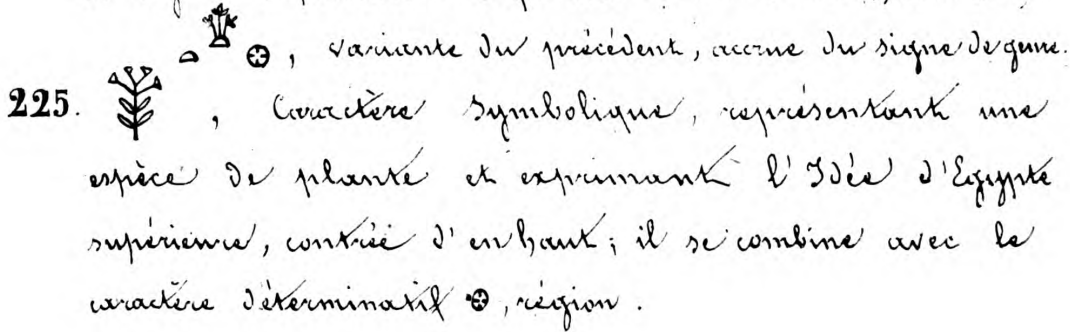 , variante du précédent, accrue du signe de genre.
225. , Caractère Symbolique, représentant une
espèce de plante et exprimant l'Idée d'Egypte
supérieure, contrée d'en haut; il se combine avec le
caractère déterminatif , région.